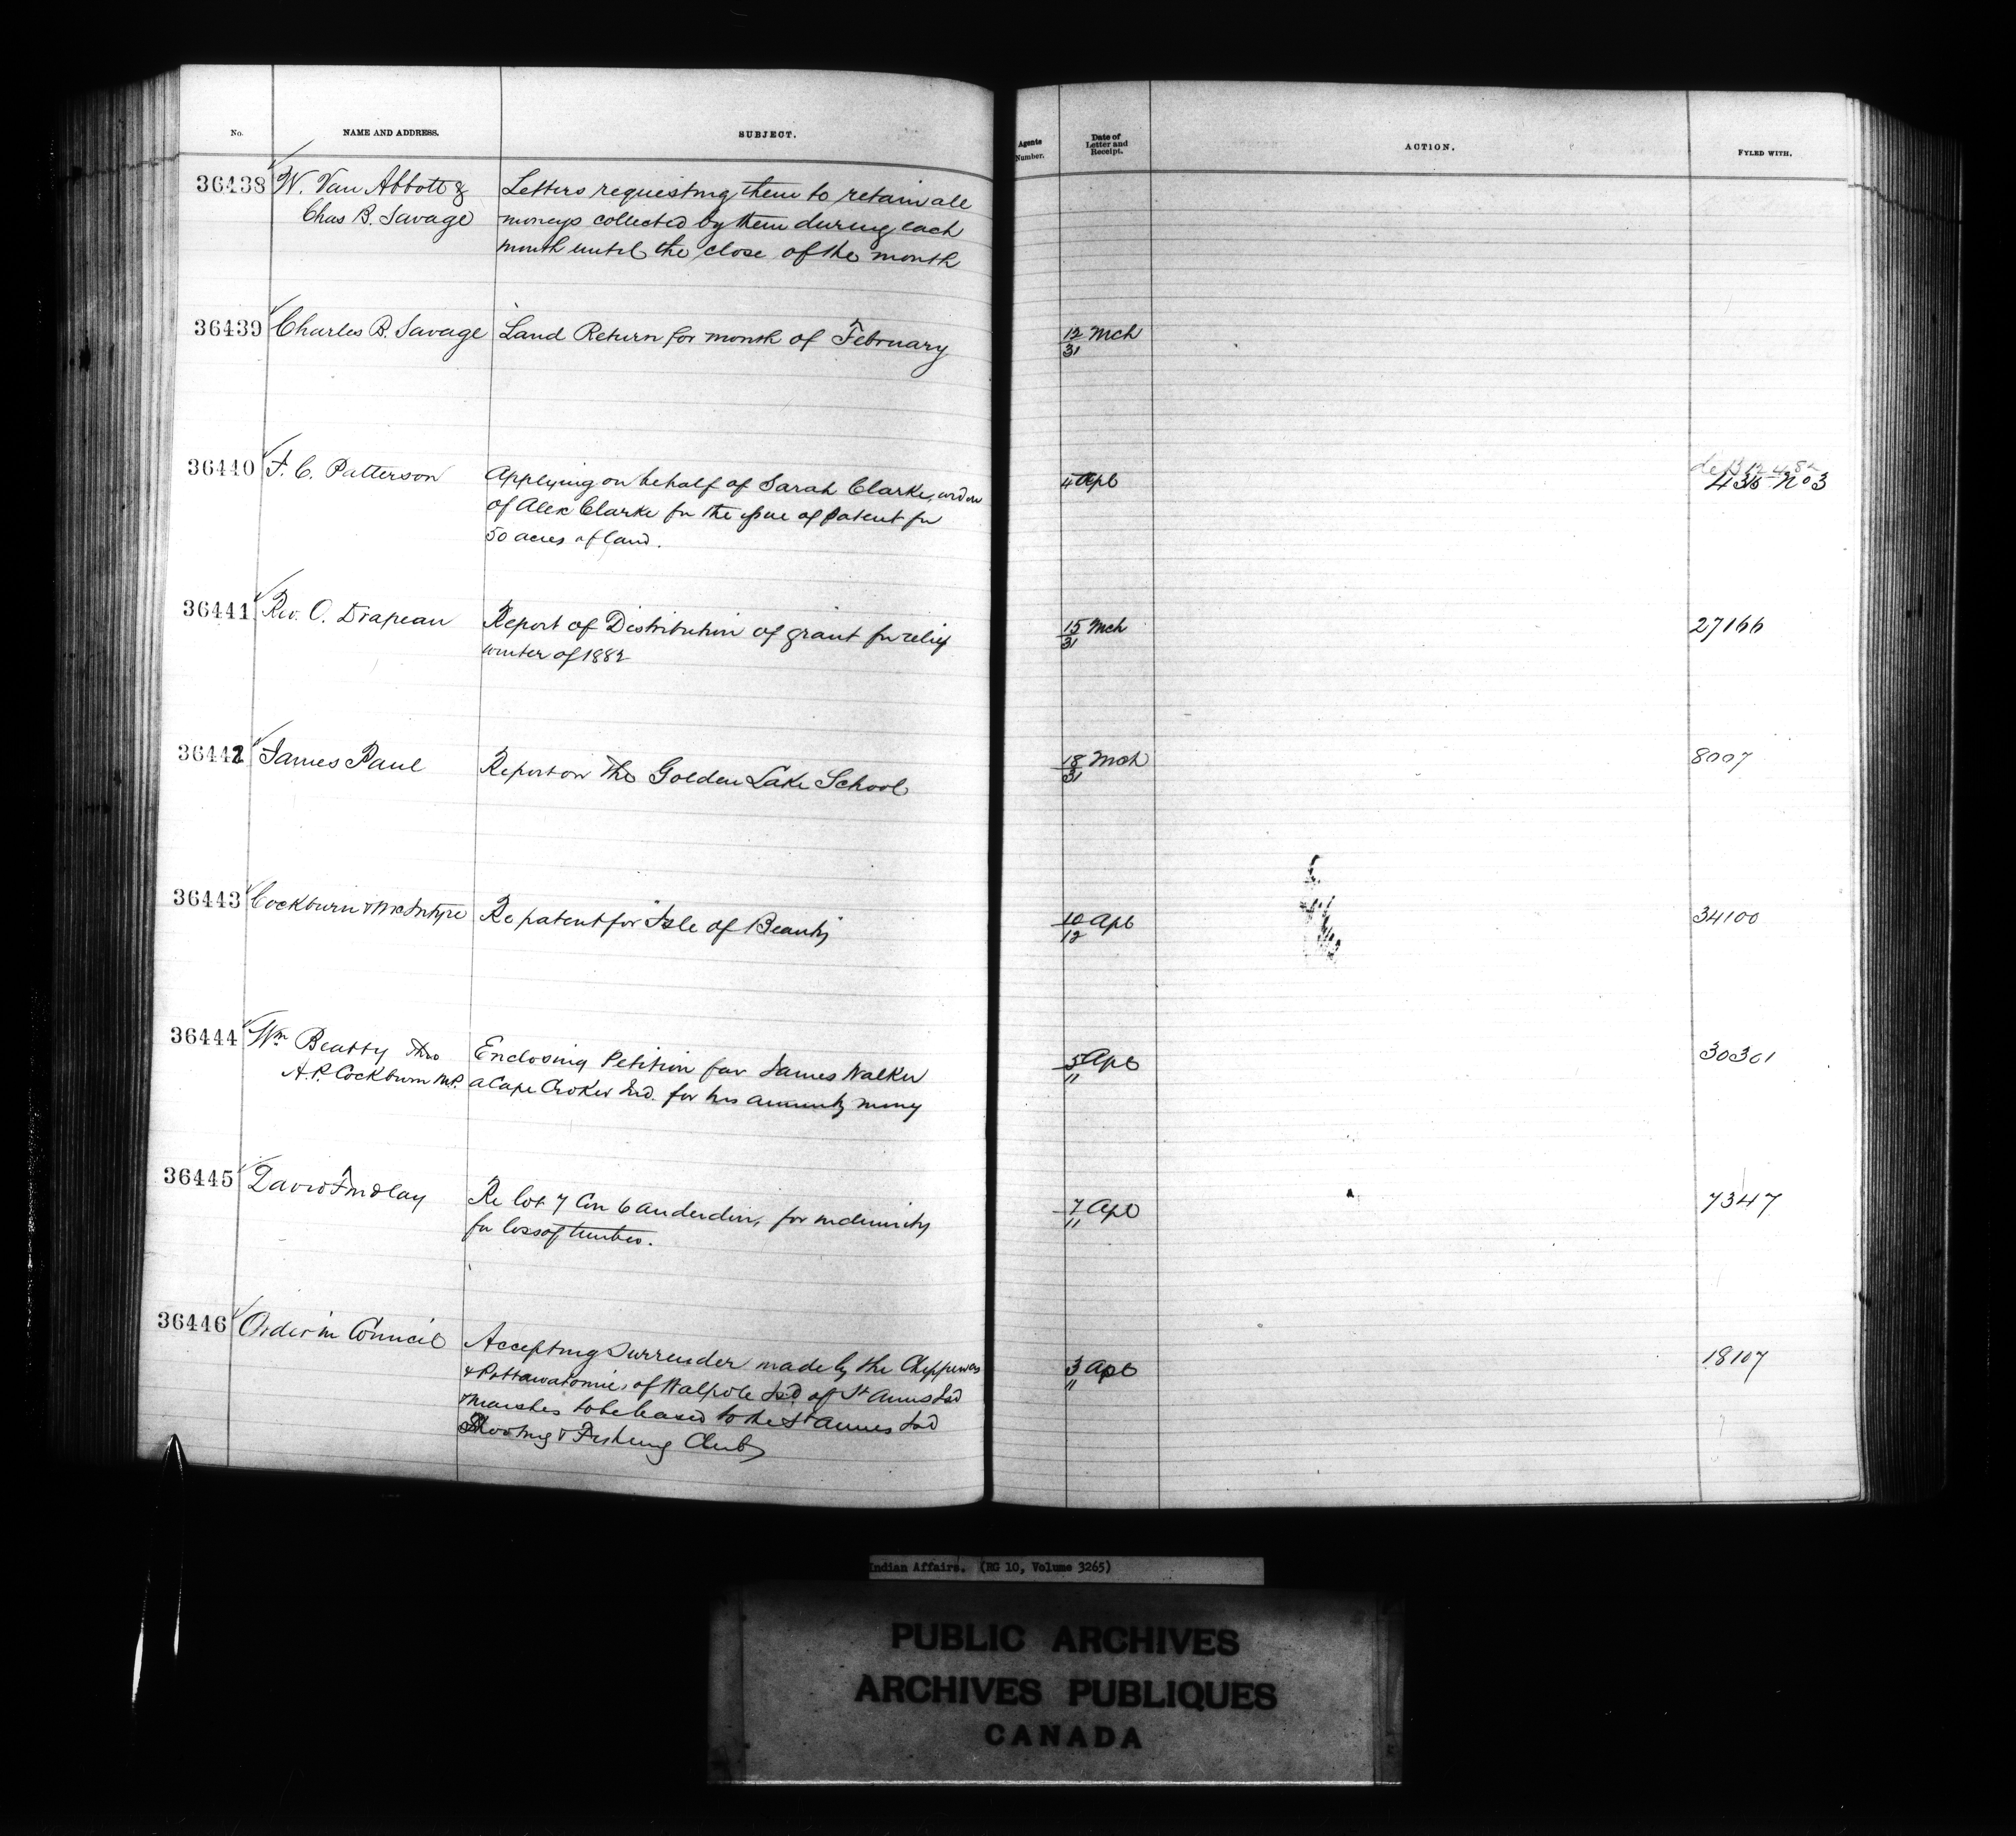 No. NAME AND ADDRESS. SUBJECT. Agents Number. Date of Letter and Receipt. ACTION. FYLED WITH.
36438 W. Van Abbott & Letters requesting them to retain all
Chas B. Savage moneys collected by them during each
month until the close of the month
36439 Charles B. Savage Land Return for month of February 12 Mch
31
36440 F. C. Patterson Applying on behalf of Sarah Clarke, widow 4 Apl 436 No 3
of Alex Clarke for the issue of patent for
50 acres of land.
36441 Rev. O. Drapeau Report of Distribution of grant for relief 15 Mch 27166
winter of 1882 31
36442 James Paul Report on the Golden Lake School 18 Mch 8007
31
36443 Cockburn & McIntyre Re patent for "Isle of Beauty" 10 Apl 34100
12
36444 Wm Beatty thro Enclosing Petition for James Walker 5 Apl 30361
A. P. Cockburn M.P. a Cape Croker Ind. for his annuity money 11
36445 David Findlay Re lot 7 Con 6 Anderdon, for indemnity 7 Apl 7347
for loss of timber. 11
36446 Order in Council Accepting Surrender made by the Chippewas 3 Apl 18107
& Pottawatomies of Walpole Isd of St Annes Isd 11
& Marshes to be leased to the St Annes Isd
Shooting & Fishing Club
Indian Affairs. (RG 10, Volume 3265)
PUBLIC ARCHIVES
ARCHIVES PUBLIQUES
CANADA